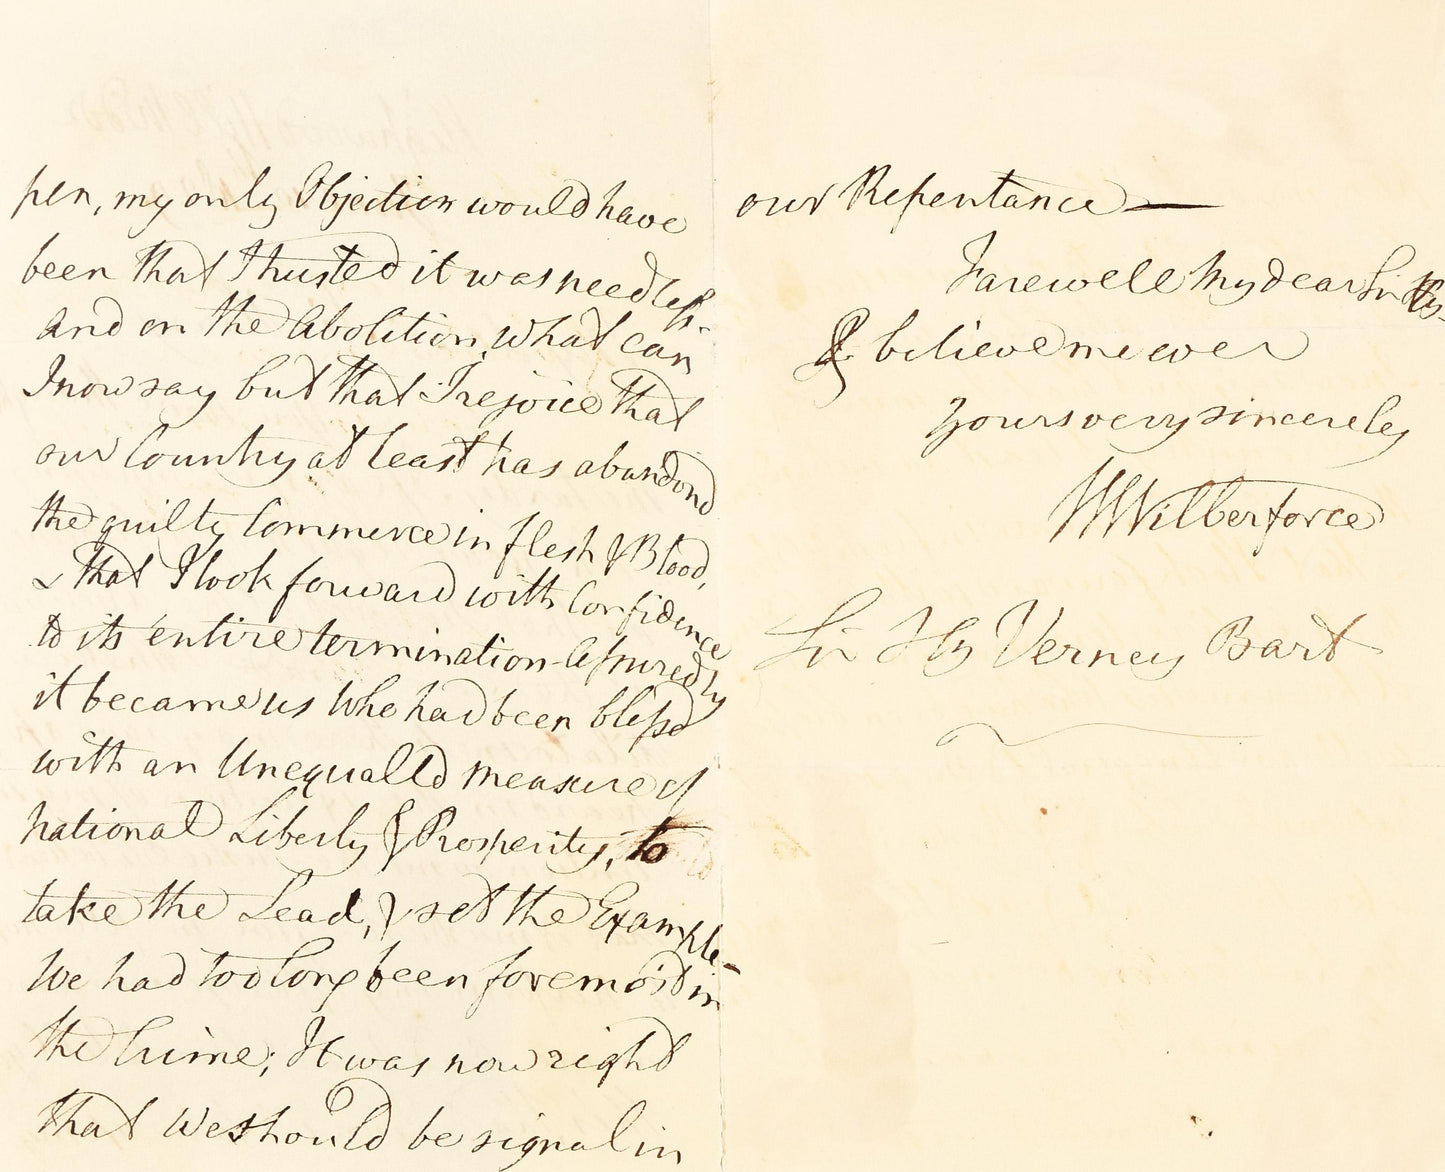 pen, my only Objection would have
been that I trusted it was needless-
And on the Abolition, what can
I now say but that I rejoice that
our Country at least has abandond
the guilty Commerce in flesh & Blood,
& that I look forward with Confidence
to its entire termination - Assuredly
it became us who had been blessd
with an Unequalld measure of
national Liberty & Prosperity, to
take the Lead, & set the Example-
We had too long been foremost in
the Crime; It was now right
that We should be signal in
our Repentance —
Farewell My dear Sir Hy-
& believe me ever
Yours very sincerely
W Wilberforce
Sir Hy Verney Bart